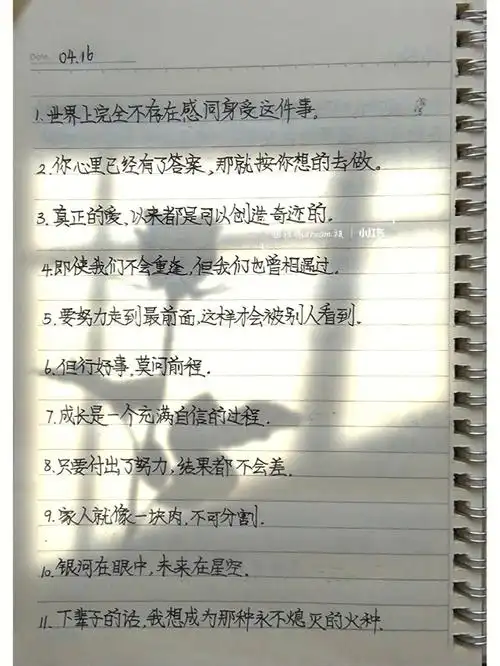 Date 04.16
1.世界上完全不存在感同身受这件事。
2.你心里已经有了答案,那就按你想的去做。
3.真正的爱,以来都是可以创造奇迹的.
小红书
4.即使我们不会重逢,但我们也曾相遇过.
5.要努力走到最前面,这样才会被别人看到.
6.但行好事,莫问前程.
7.成长是一个充满自信的过程.
8.只要付出了努力,结果都不会差.
9.家人就像一块肉,不可分割.
10.银河在眼中,未来在星空.
11.下辈子的话,我想成为那种永不熄灭的火种.